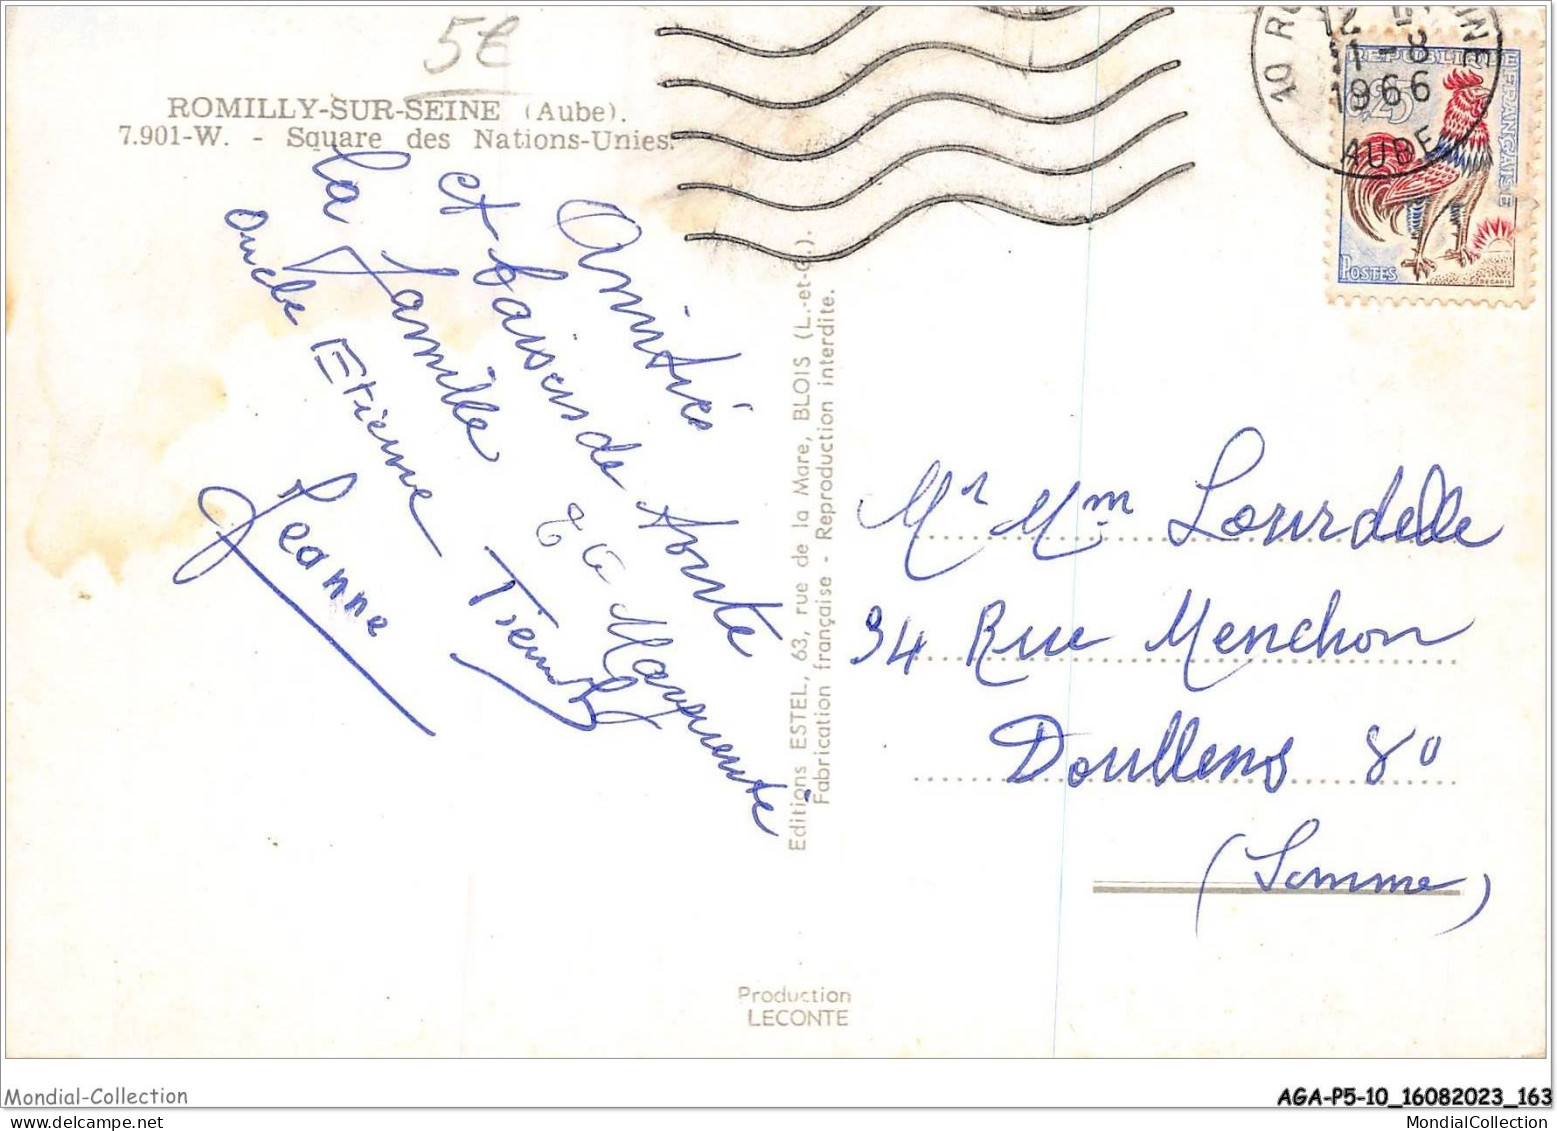 5€
ROMILLY-SUR-SEINE (Aube).
7.901-W. - Square des Nations-Unies.
Amitiés
et baisers de toute
la famille
Oncle Etienne
Jeanne
Editions ESTEL, 63, rue de la Mare, BLOIS (L.-et-C.).
Fabrication française - Reproduction interdite.
10 RO INE
12 H
-8
1966
AUBE
REPUBLIQUE FRANÇAISE
0,25
POSTES
DECARIS
Mr Mm Lourdelle
34 Rue Menchon
Doullens 80
(Somme)
Production
LECONTE
Mondial-Collection
AGA-P5-10_16082023_163
MondialCollection